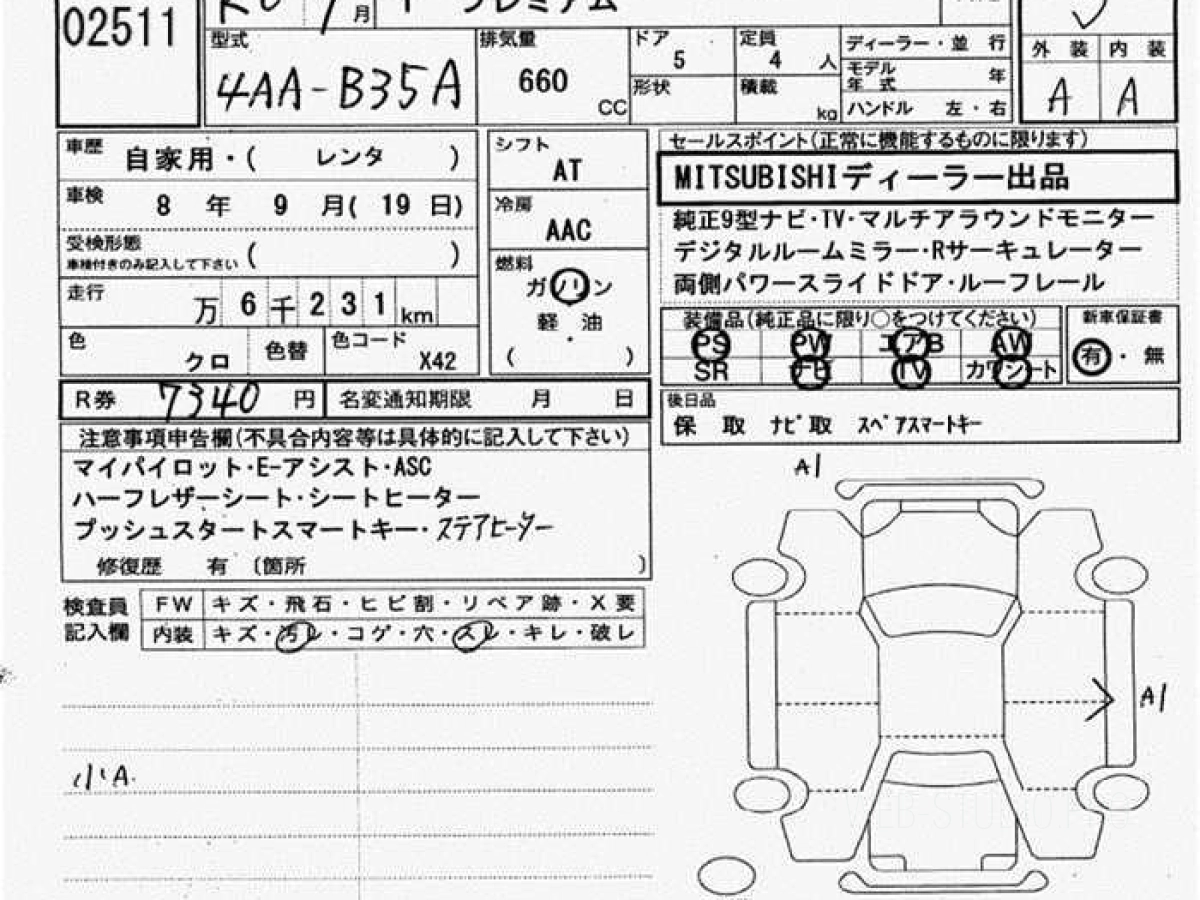 02511
月
プレミアム
型式
4AA-B35A
排気量
660
CC
ドア
5
形状
定員
4 人
積載
kg
ディーラー・並 行
モデル年式 年
ハンドル 左・右
外 装 内 装
A A
車歴
自家用・( レンタ )
車検
8 年 9 月( 19 日)
受検形態
車検付きのみ記入して下さい ( )
走行
万 6 千 2 3 1 km
色
クロ
色替
色コード
X42
シフト
AT
冷房
AAC
燃料
ガソリン
軽 油
( ・ )
セールスポイント(正常に機能するものに限ります)
MITSUBISHIディーラー出品
純正9型ナビ・TV・マルチアラウンドモニター
デジタルルームミラー・Rサーキュレーター
両側パワースライドドア・ルーフレール
装備品(純正品に限り○をつけてください)
PS PW エアB AW
SR ナビ TV カワシート
新車保証書
有・無
R券 7340 円
名変通知期限 月 日
後日品
保 取 ナビ取 スペアスマートキー
注意事項申告欄(不具合内容等は具体的に記入して下さい)
マイパイロット・E-アシスト・ASC
ハーフレザーシート・シートヒーター
プッシュスタートスマートキー・ステアヒーター
修復歴 有 〔箇所 〕
検査員
記入欄
FW キズ・飛石・ヒビ割・リペア跡・X要
内装 キズ・汚レ・コゲ・穴・スレ・キレ・破レ
小A.
A1
A1